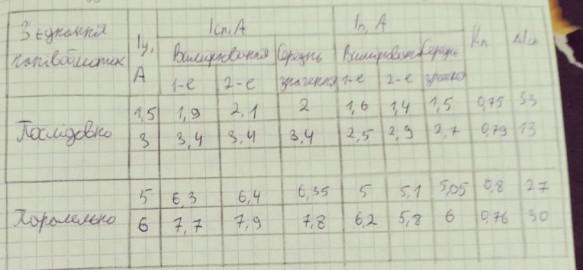 З'єднання Iу, Iсп, А Iп, А Kп ΔIсп
напівобмоток А Вимірювання Середнє Вимірювання Середнє
1-е 2-е значення 1-е 2-е значення
1,5 1,9 2,1 2 1,6 1,4 1,5 0,75 33
Послідовно 3 3,4 3,4 3,4 2,5 2,9 2,7 0,79 13
5 6,3 6,4 6,35 5 5,1 5,05 0,8 27
Паралельно 6 7,7 7,9 7,8 6,2 5,8 6 0,76 30